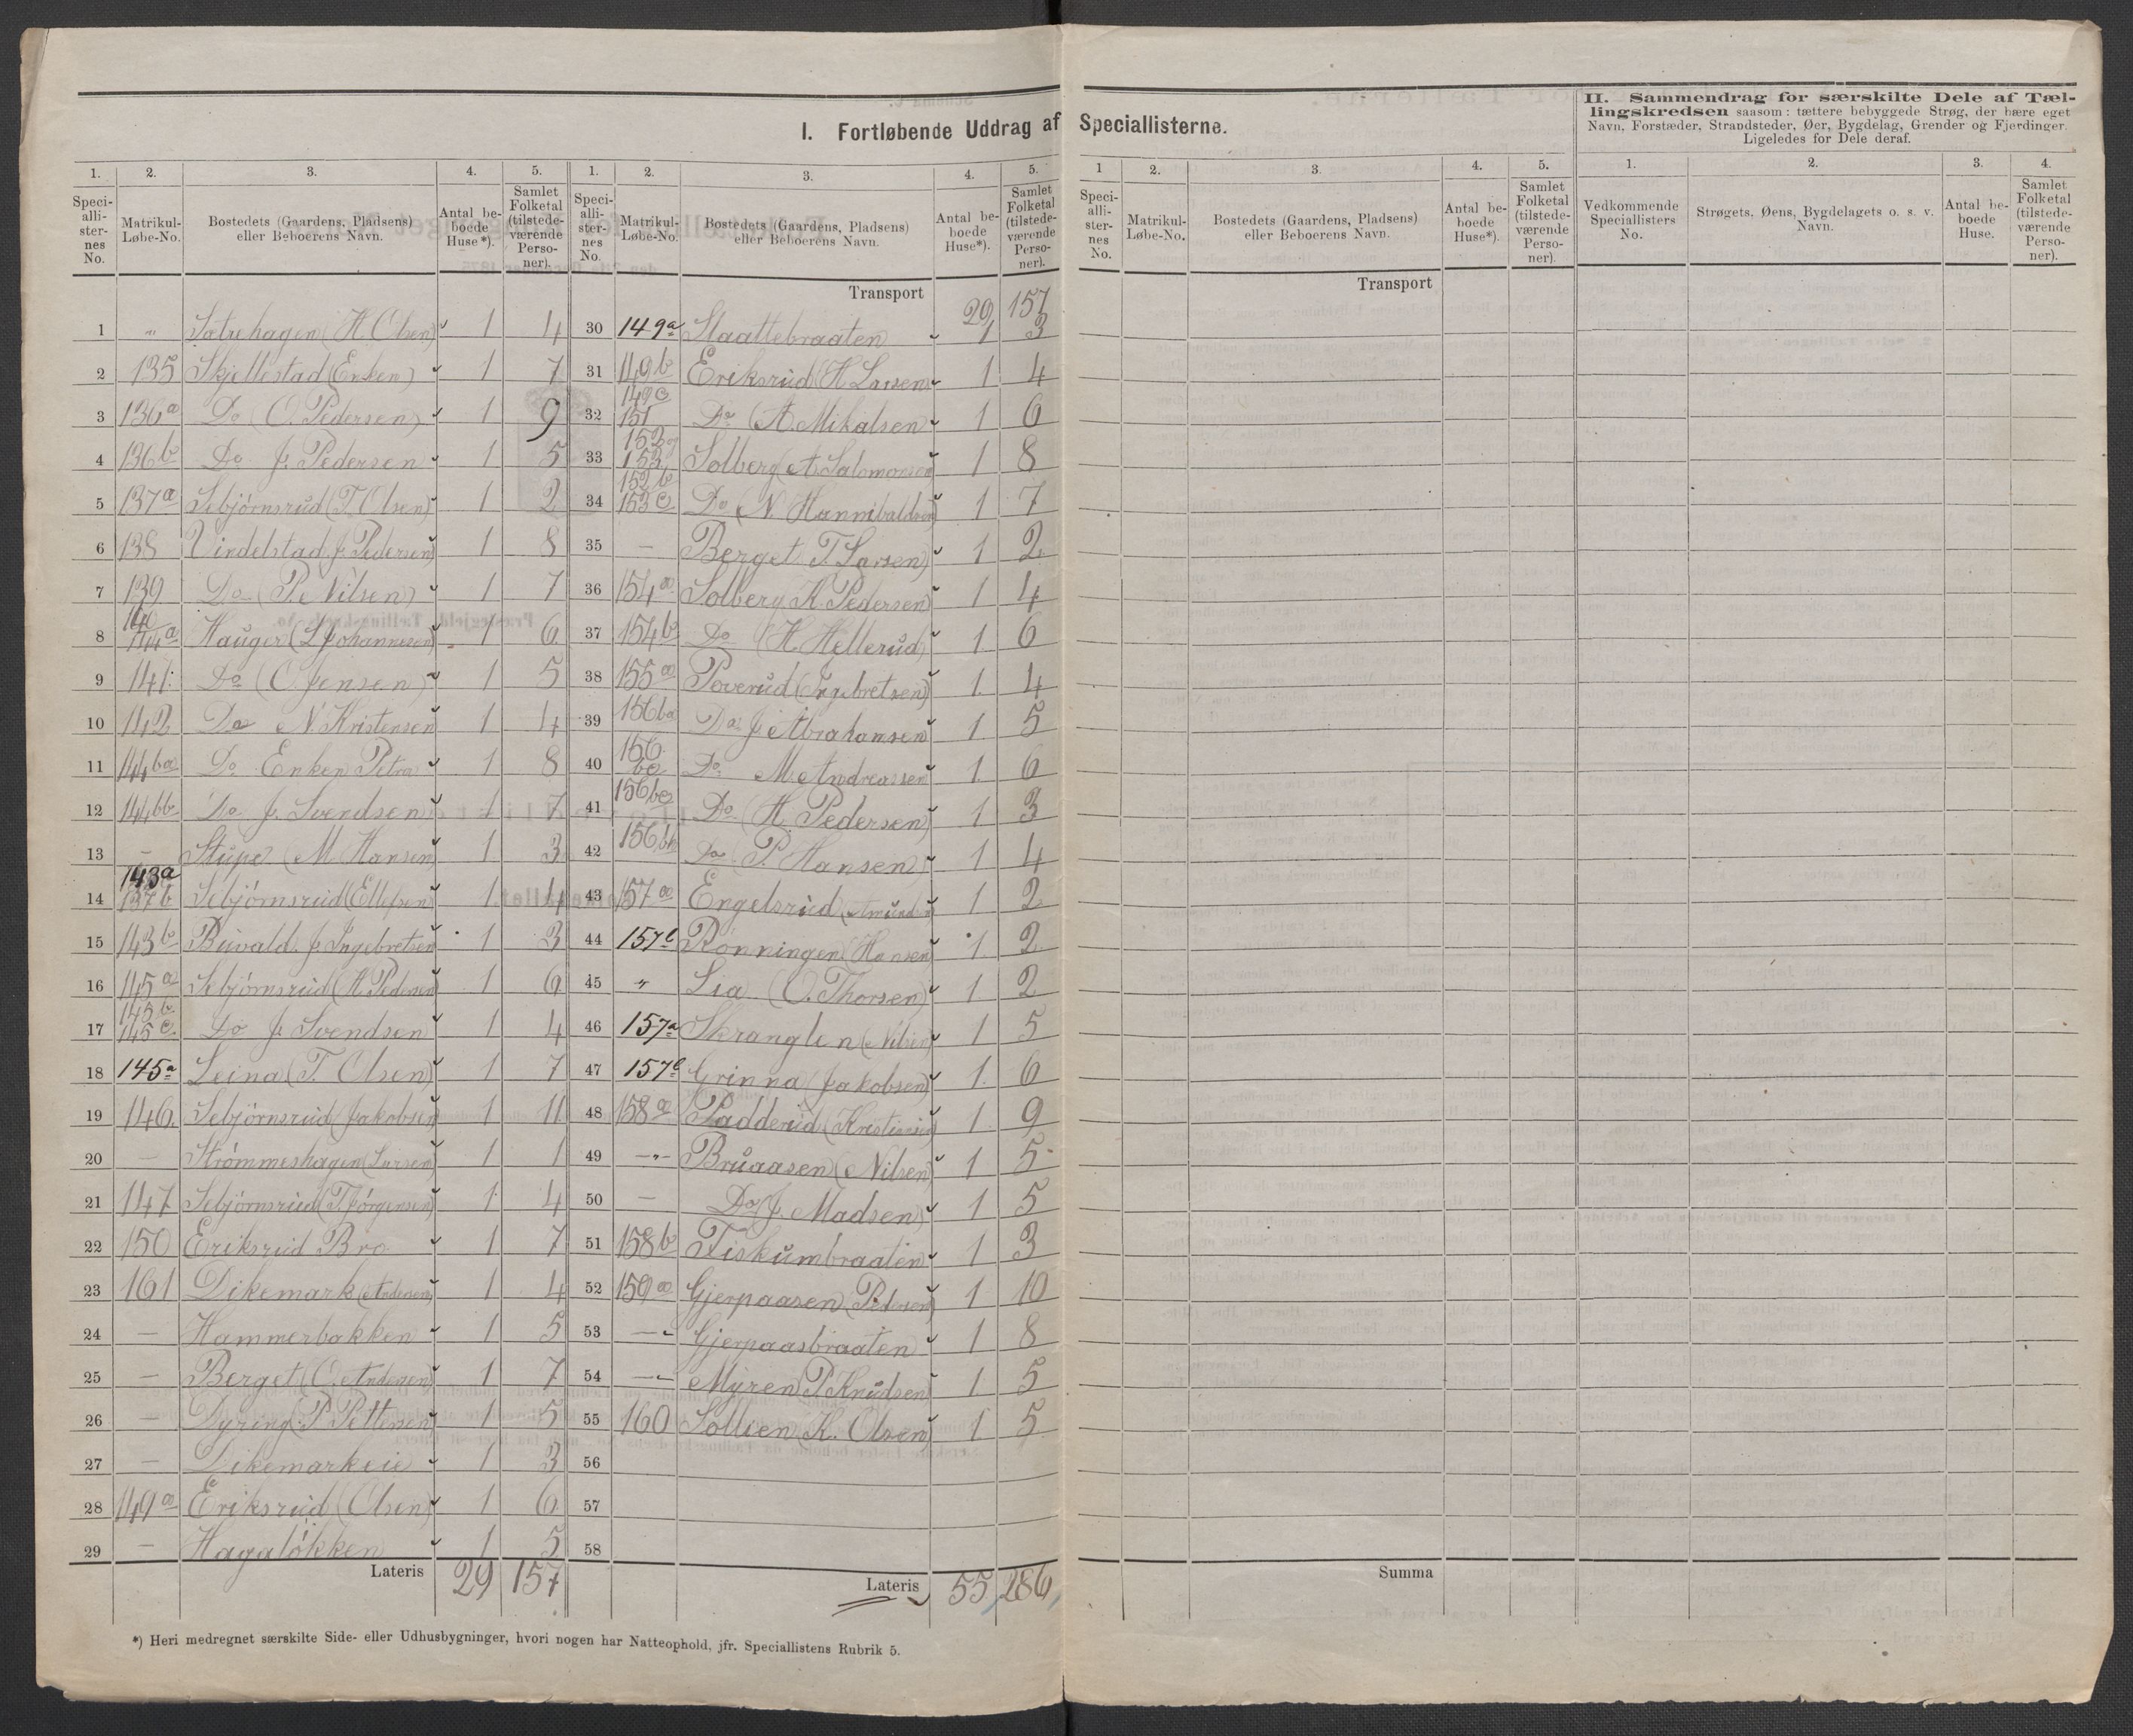 I. Fortløbende Uddrag af Speciallisterne.
II. Sammendrag for særskilte Dele af Tællingskredsen saasom: tættere bebyggede Strøg, der bære eget
Navn, Forstæder, Strandsteder, Øer, Bygdelag, Grender og Fjerdinger.
Ligeledes for Dele deraf.
1. 2. 3. 4. 5.
Speciallisternes No. Matrikul-Løbe-No. Bostedets (Gaardens, Pladsens) eller Beboerens Navn. Antal beboede Huse*). Samlet Folketal (tilstedeværende Personer).
1 „ Sætrehagen (H. Olsen) 1 4
2 135 Skjellestad (Enken) 1 7
3 136a Do (O. Pedersen) 1 9
4 136b Do J. Pedersen 1 5
5 137a Sebjörnsrud (T. Olsen) 1 2
6 138 Vindelstad J. Pedersen) 1 8
7 139 Do (P. Nilsen) 1 7
8 140 144a Hauger (L Johannesen) 1 6
9 141 Do (O. Jensen) 1 5
10 142 Do N. Kristensen 1 4
11 144ba Do Enken Petra 1 8
12 144bb Do J. Svendsen 1 7
13 — Stupe (M. Hansen) 1 3
14 143a 137b Sebjörnsrud (Ellefsen) 1 4
15 143b Buvald. J. Ingebretsen 1 3
16 145a Sebjörnsrud (A. Pedersen) 1 6
17 145b 145c Do J. Svendsen 1 4
18 145a Leina (T. Olsen) 1 7
19 146. Sebjörnsrud (Jakobsen 1 11
20 — Strömmeshagen (Larsen) 1 1
21 147 Sebjörnsrud (T. Jörgensen) 1 4
22 150 Eriksrud Bro 1 7
23 161 Dikemark (Andersen) 1 4
24 — Hammerbakken 1 5
25 — Berget (O. Andersen) 1 7
26 — Dyring (P. Pettersen 1 5
27 — Dikemarkeie 1 3
28 149a Eriksrud (Olsen) 1 6
29 — Hagalökken 1 5
Lateris 29 157
1. 2. 3. 4. 5.
Speciallisternes No. Matrikul-Løbe-No. Bostedets (Gaardens, Pladsens) eller Beboerens Navn. Antal beboede Huse*). Samlet Folketal (tilstedeværende Personer).
Transport 29 157
30 149a Slaattebraaten 1 3
31 149b Eriksrud (H. Larsen 1 4
32 149c 151 Do (A. Mikalsen 1 6
33 Solberg (A. Salomonsen 1 8
34 152b 153c Do (N. Hannibaldsen) 1 7
35 — Berget T. Larsen) 1 2
36 154a Solberg K. Pedersen) 1 4
37 154b Do (H. Hellerud) 1 6
38 155a Poverud (Ingebretsen) 1 4
39 156ba Do J. Abrahamsen 1 5
40 Do M. Andreassen 1 6
41 Do (H. Pedersen) 1 3
42 Do P. Hansen) 1 4
43 157a Engelsrud 1 2
44 157b Rönningen (Hansen) 1 2
45 „ Lia (O. Thorsen) 1 2
46 157a Skranglen (Nilsen) 1 5
47 157b Grinna (Jakobsen) 1 6
48 158a Padderud (Kristiansen) 1 9
49 —„— Bruaasen (Nilsen) 1 5
50 — Do J. Madsen) 1 5
51 158b Fiskumbraaten 1 3
52 159a Gjerpaasen (Pedersen) 1 10
53 — Gjerpaasbraaten 1 8
54 — Myren P. Knudsen) 1 5
55 160 Sollien K. Olsen) 1 5
56
57
58
Lateris 55 286
1 2. 3. 4. 5.
Speciallisternes No. Matrikul-Løbe-No. Bostedets (Gaardens, Pladsens) eller Beboerens Navn. Antal beboede Huse*). Samlet Folketal (tilstedeværende Personer).
Transport
Summa
1. 2. 3. 4.
Vedkommende Speciallisters No. Strøgets, Øens, Bygdelagets o. s. v. Navn. Antal beboede Huse. Samlet Folketal (tilstedeværende Personer).
*) Heri medregnet særskilte Side- eller Udhusbygninger, hvori nogen har Natteophold, jfr. Speciallistens Rubrik 5.